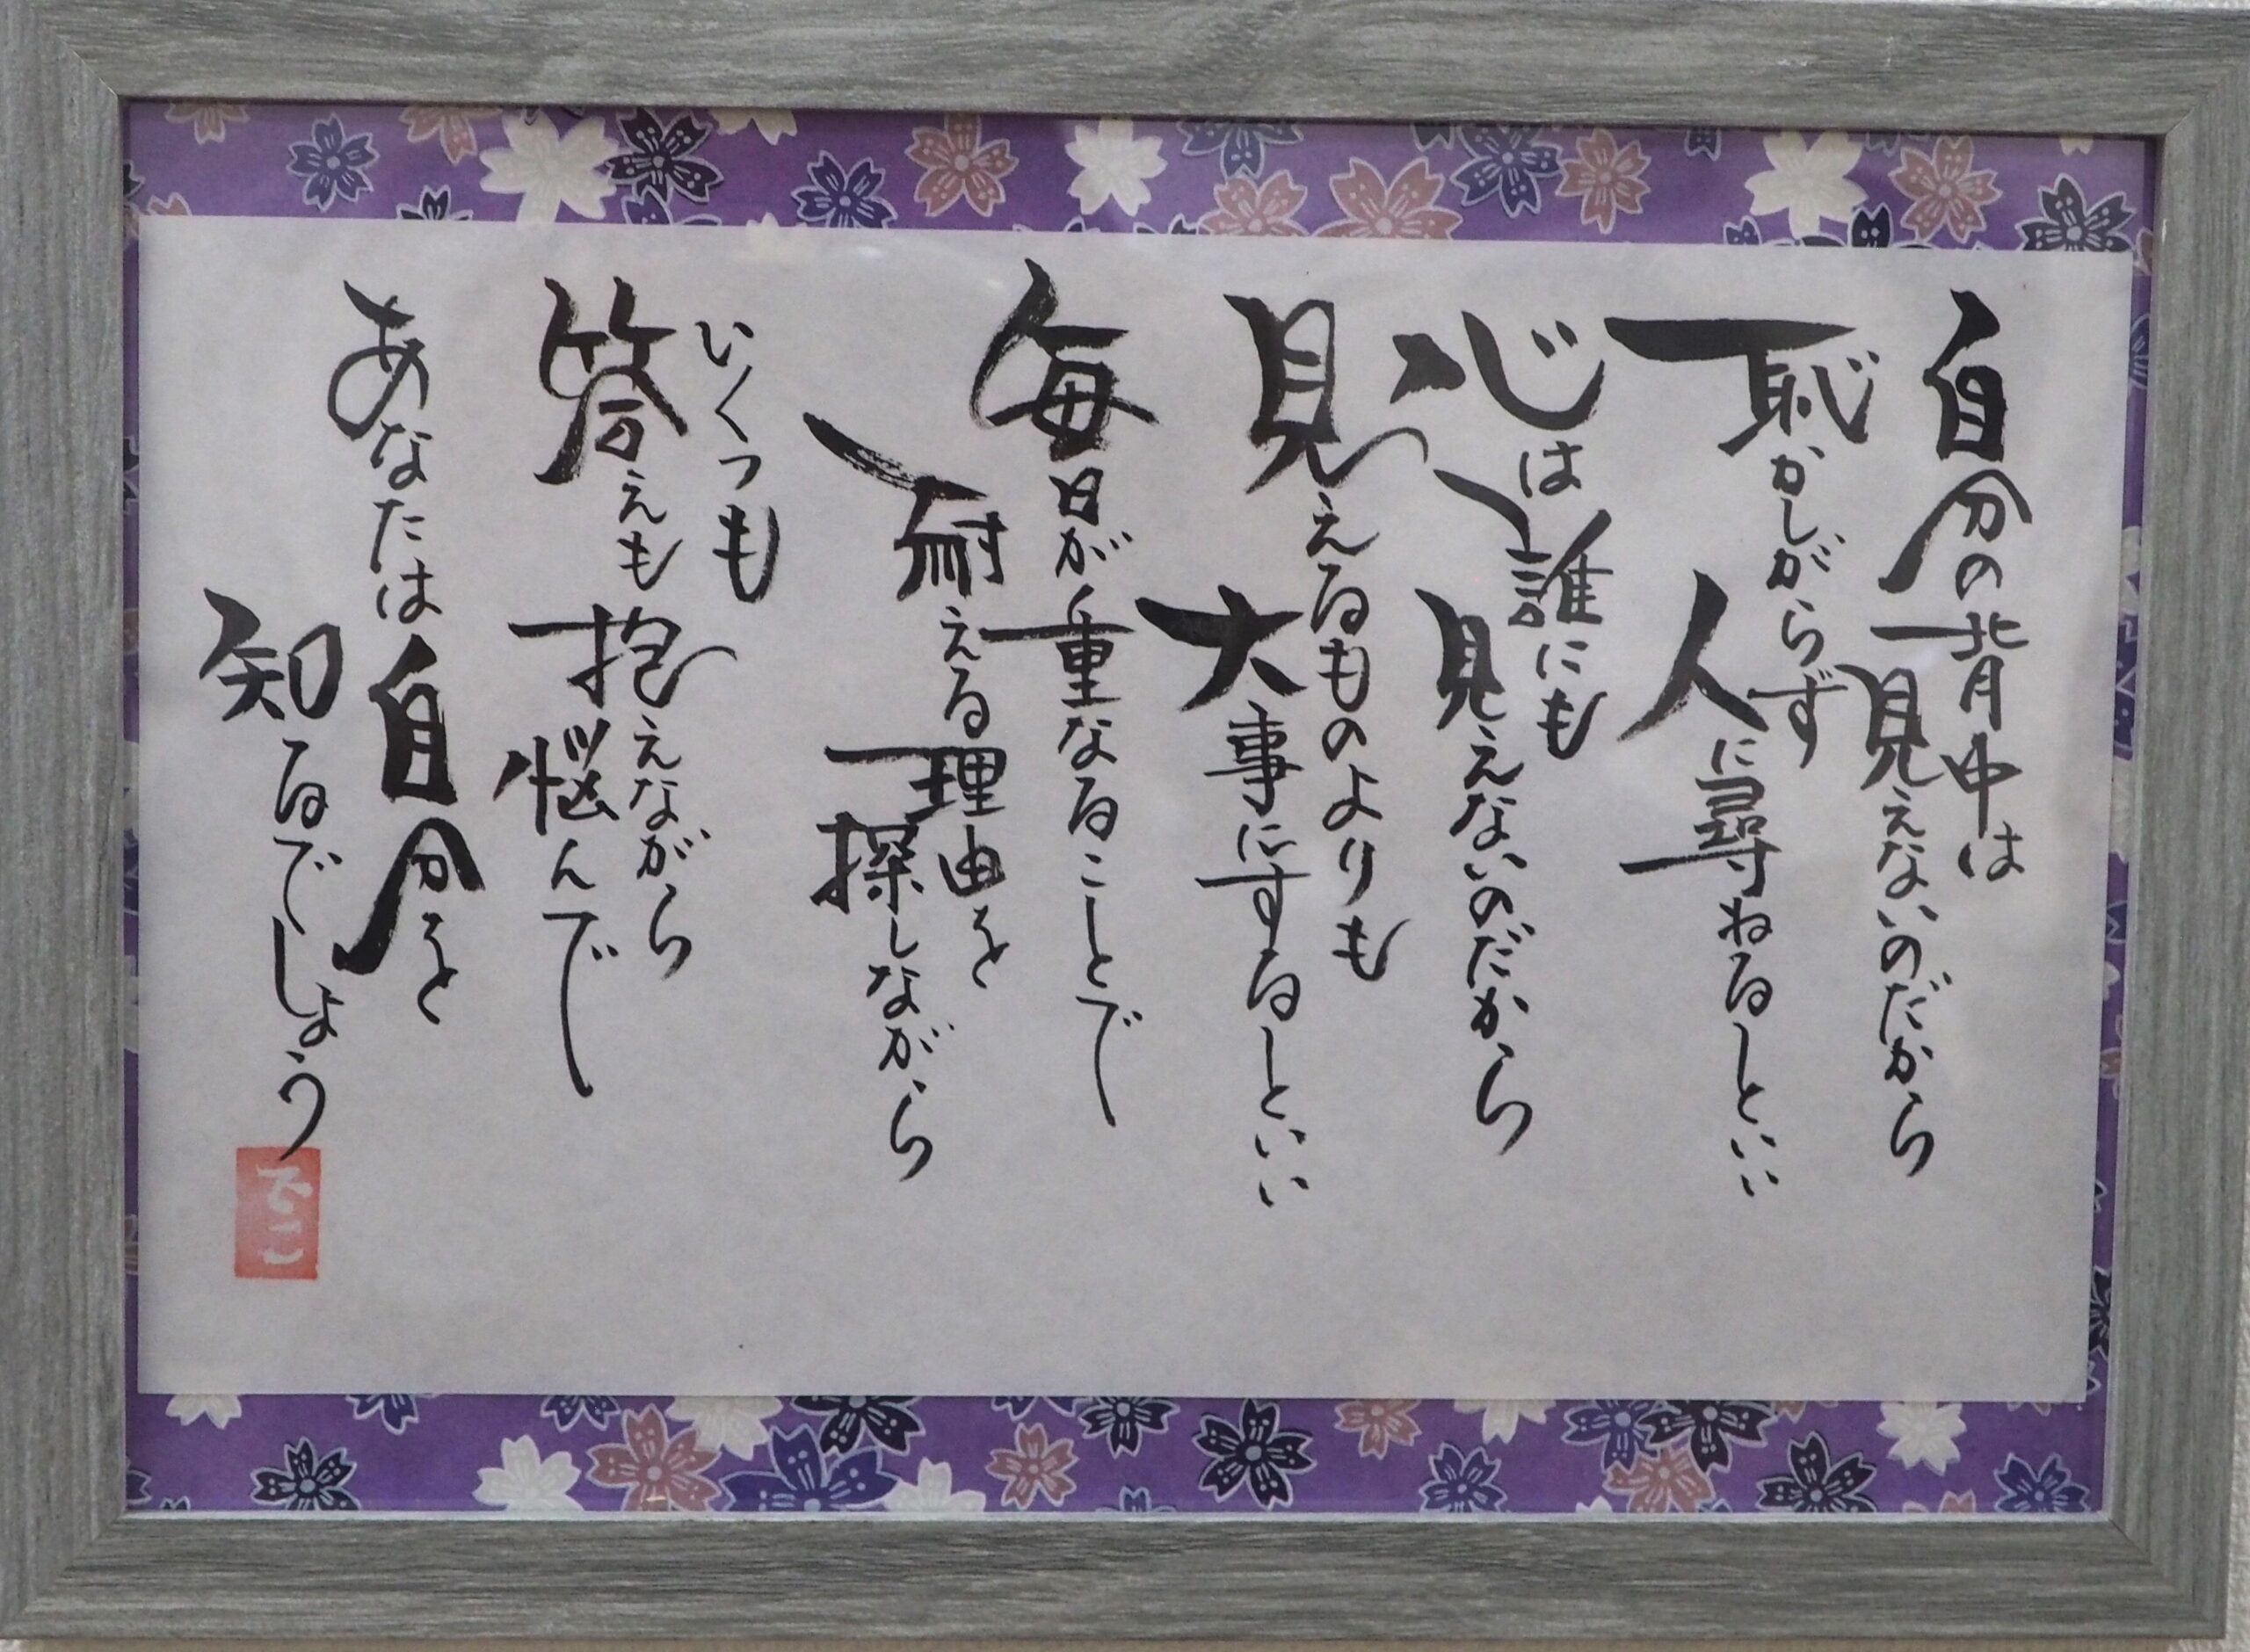 自分の背中は
見えないのだから
恥かしがらず
人に尋ねるといい
心は誰にも
見えないのだから
見えるものよりも
大事にするといい
毎日が重なることで
耐える理由を
探しながら
いくつも
答えも抱えながら
悩んで
あなたは自分を
知るでしょう
でこ